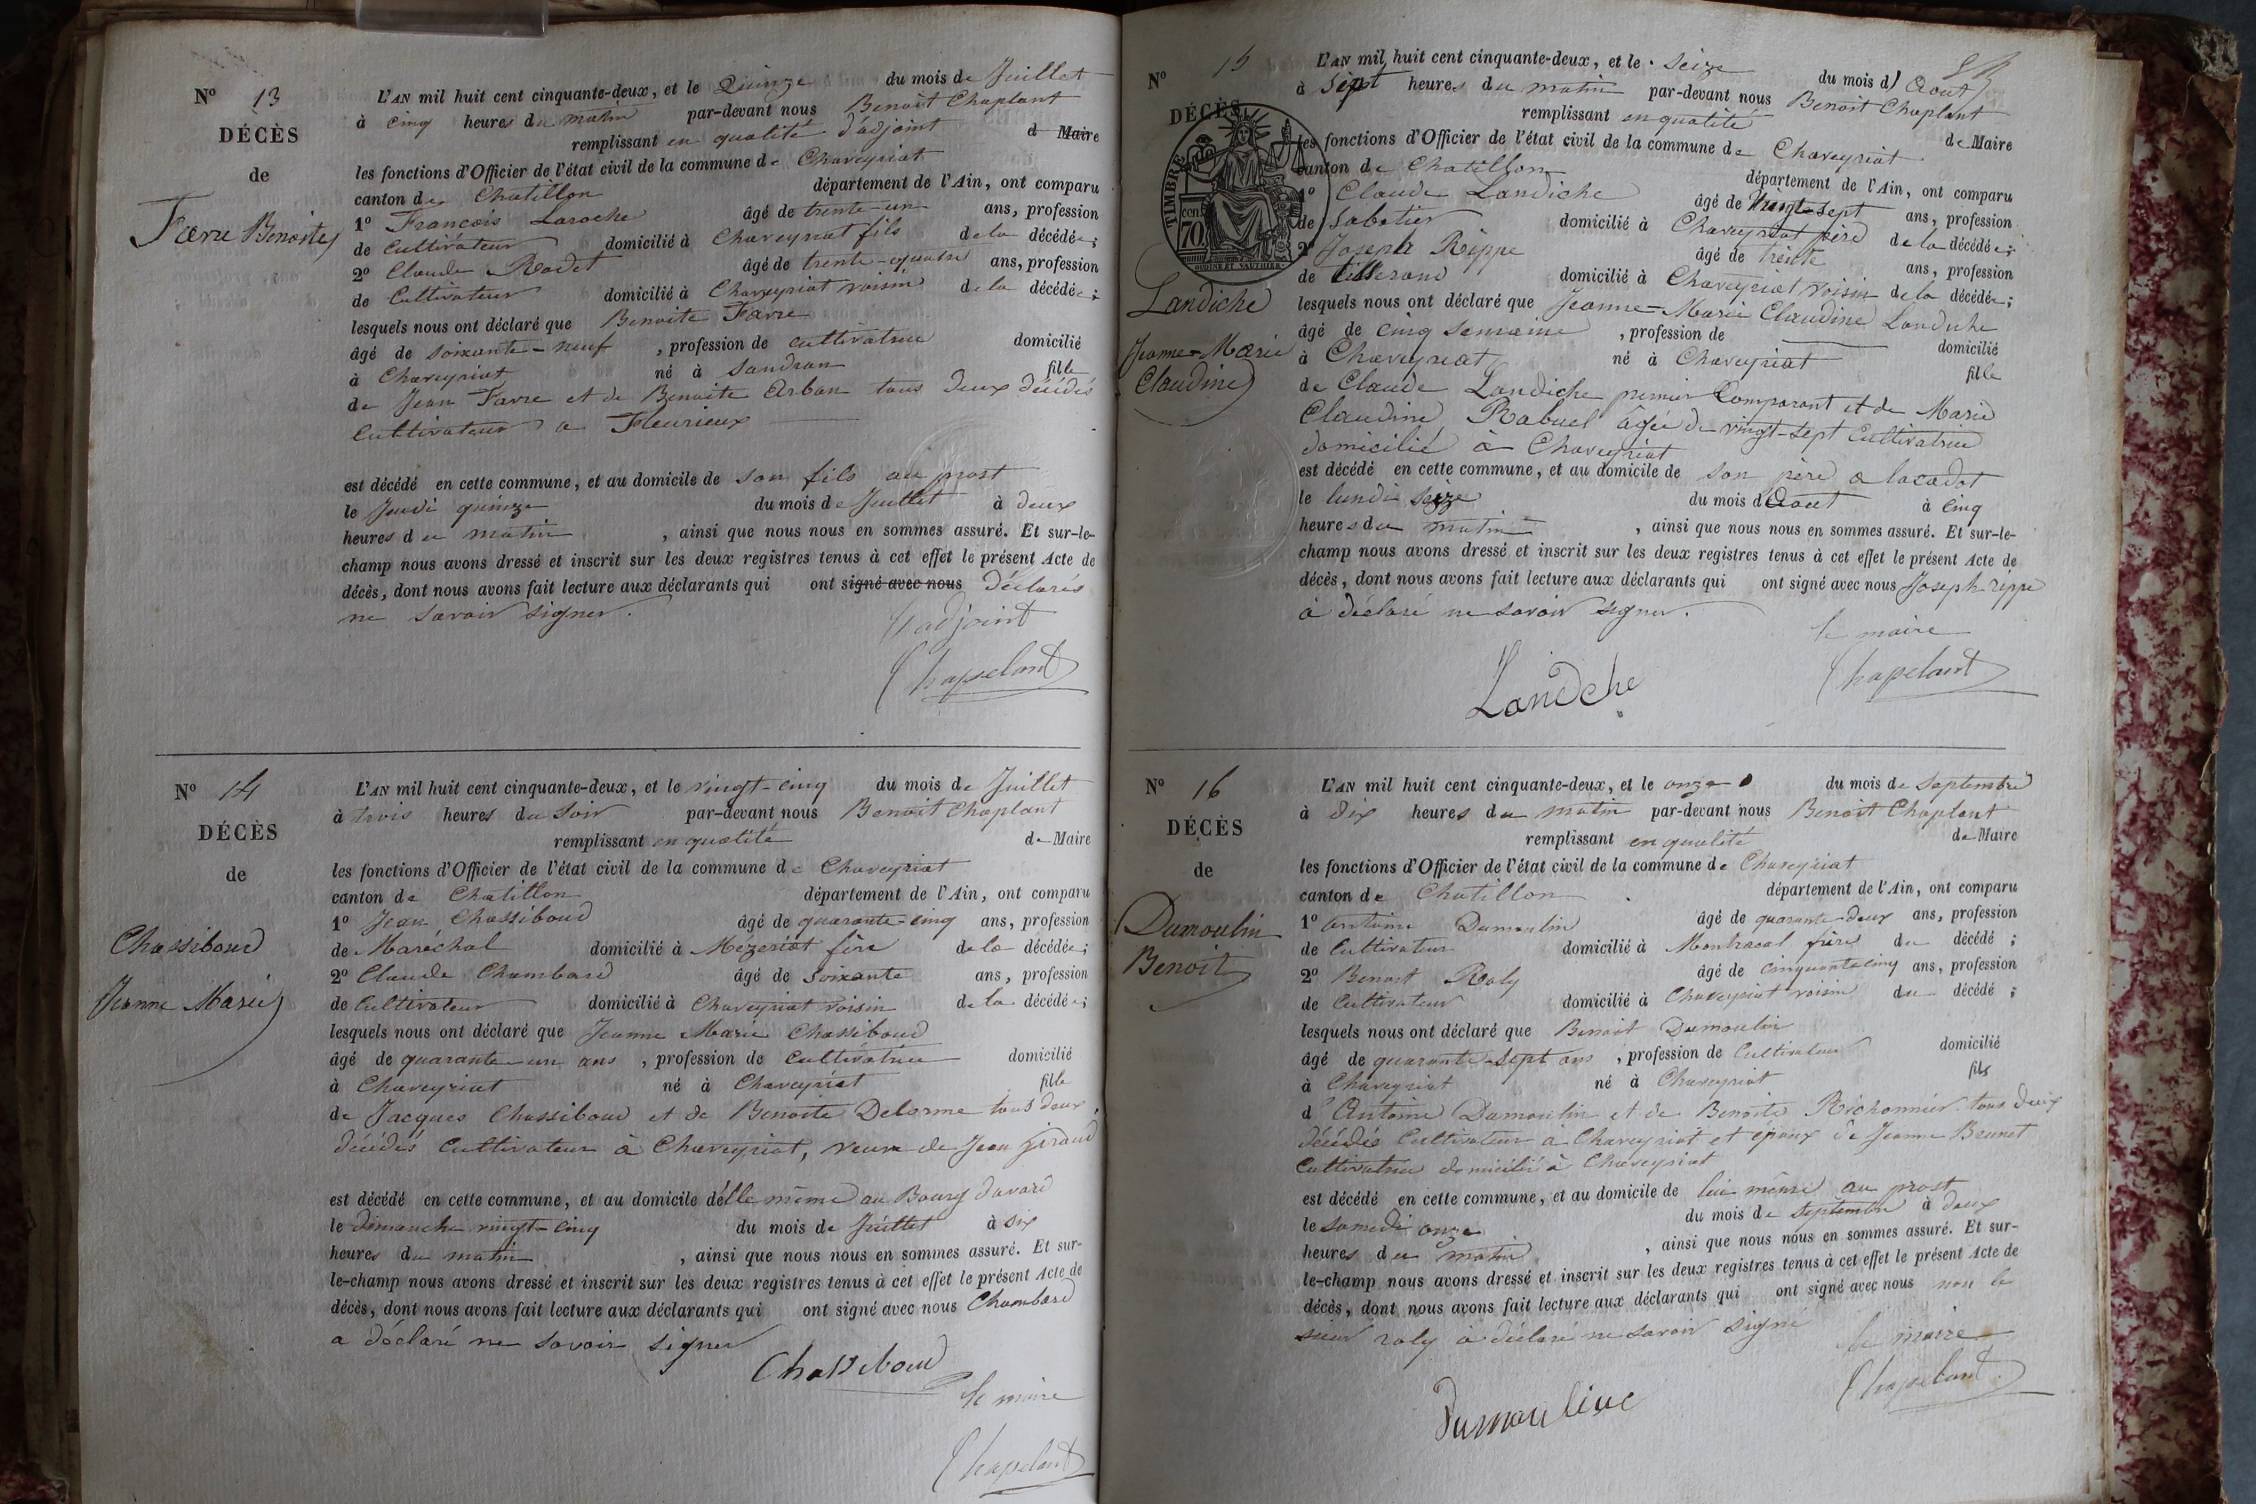 Nº 13
DÉCÈS
de
Favre Benoite
L'AN mil huit cent cinquante-deux, et le Quinze du mois de Juillet
à cinq heures du matin par-devant nous Benoit Chaplant
remplissant en qualité d'adjoint d Maire
les fonctions d'Officier de l'état civil de la commune de Chaveyriat
canton de Chatillon département de l'Ain, ont comparu
1º François Laroche âgé de trente-un ans, profession
de Cultivateur domicilié à Chaveyriat fils de la décédée;
2º Claude Rodet âgé de trente-quatre ans, profession
de Cultivateur domicilié à Chaveyriat voisin de la décédée;
lesquels nous ont déclaré que Benoite Favre
âgé de soixante-neuf, profession de cultivatrice domicilié
à Chaveyriat né à Sandran fille
de Jean Favre et de Benoite Arban tous deux décédés
Cultivateur a Fleurieux
est décédé en cette commune, et au domicile de son fils au prost
le Jeudi quinze du mois de Juillet à deux
heures du matin, ainsi que nous nous en sommes assuré. Et sur-le-
champ nous avons dressé et inscrit sur les deux registres tenus à cet effet le présent Acte de
décès, dont nous avons fait lecture aux déclarants qui ont signé avec nous déclarés
ne savoir signer.
l'adjoint
Chapelant
Nº 14
DÉCÈS
de
Chassiboud
Jeanne Marie
L'AN mil huit cent cinquante-deux, et le vingt-cinq du mois de Juillet
à trois heures du soir par-devant nous Benoit Chaplant
remplissant en qualité de Maire
les fonctions d'Officier de l'état civil de la commune de Chaveyriat
canton de Chatillon département de l'Ain, ont comparu
1º Jean Chassiboud âgé de quarante-cinq ans, profession
de Maréchal domicilié à Mézeriat fère de la décédée;
2º Claude Chambard âgé de soixante ans, profession
de Cultivateur domicilié à Chaveyriat voisin de la décédée;
lesquels nous ont déclaré que Jeanne Marie Chassiboud
âgé de quarante-un ans, profession de Cultivatrice domicilié
à Chaveyriat né à Chaveyriat fille
de Jacques Chassiboud et de Benoite Delorme tous deux
décédés Cultivateur à Chaveyriat, veuve de Jean Giraud
est décédé en cette commune, et au domicile d'elle même au Bourg davard
le dimanche vingt-cinq du mois de Juillet à six
heures du matin, ainsi que nous nous en sommes assuré. Et sur-
le-champ nous avons dressé et inscrit sur les deux registres tenus à cet effet le présent Acte de
décès, dont nous avons fait lecture aux déclarants qui ont signé avec nous Chambard
a déclaré ne savoir signer
Chassiboud
le maire
Chapelant
Nº 15
DÉCÈS
TIMBRE
70 cen
Landiche
Jeanne-Marie
Claudine
L'AN mil huit cent cinquante-deux, et le seize du mois d'Aout
à Sept heures du matin par-devant nous Benoit Chaplant
remplissant en qualité de Maire
les fonctions d'Officier de l'état civil de la commune de Chaveyriat
canton de Chatillon département de l'Ain, ont comparu
1º Claude Landiche âgé de Vingt-sept ans, profession
de Sabotier domicilié à Chaveyriat père de la décédée;
2º Joseph Rippe âgé de trente ans, profession
de tisserand domicilié à Chaveyriat voisin de la décédée;
lesquels nous ont déclaré que Jeanne-Marie Claudine Landiche
âgé de cinq semaine, profession de domicilié
à Chaveyriat né à Chaveyriat fille
de Claude Landiche premier Comparant et de Marie
Claudine Rabuel âgée de vingt-sept Cultivatrice
domicilié à Chaveyriat
est décédé en cette commune, et au domicile de son père a lacadot
le lundi seize du mois d'Aout à cinq
heures du matin, ainsi que nous nous en sommes assuré. Et sur-le-
champ nous avons dressé et inscrit sur les deux registres tenus à cet effet le présent Acte de
décès, dont nous avons fait lecture aux déclarants qui ont signé avec nous Joseph rippe
à déclaré ne savoir signer.
le maire
Chapelant
Landche
Nº 16
DÉCÈS
de
Dumoulin
Benoit
L'AN mil huit cent cinquante-deux, et le onze du mois de Septembre
à dix heures du matin par-devant nous Benoit Chaplant
remplissant en qualité de Maire
les fonctions d'Officier de l'état civil de la commune de Chaveyriat
canton de Chatillon département de l'Ain, ont comparu
1º Antoine Dumoulin âgé de quarante-deux ans, profession
de Cultivateur domicilié à Montracol frère du décédé;
2º Benoit Roly âgé de cinquante cinq ans, profession
de Cultivateur domicilié à Chaveyriat voisin du décédé;
lesquels nous ont déclaré que Benoit Dumoulin
âgé de quarante-sept ans, profession de Cultivateur domicilié
à Chaveyriat né à Chaveyriat fils
d'Antoine Dumoulin et de Benoite Réchonnier tous deux
décédés Cultivateur à Chaveyriat et époux de Jeanne Brunet
Cultivatrice domicilié à Chaveyriat
est décédé en cette commune, et au domicile de lui même au prost
le samedi onze du mois de septembre à deux
heures du matin, ainsi que nous nous en sommes assuré. Et sur-
le-champ nous avons dressé et inscrit sur les deux registres tenus à cet effet le présent Acte de
décès, dont nous avons fait lecture aux déclarants qui ont signé avec nous non le
sieur roly à déclaré ne savoir signé
le maire
Chapelant
Dumouline